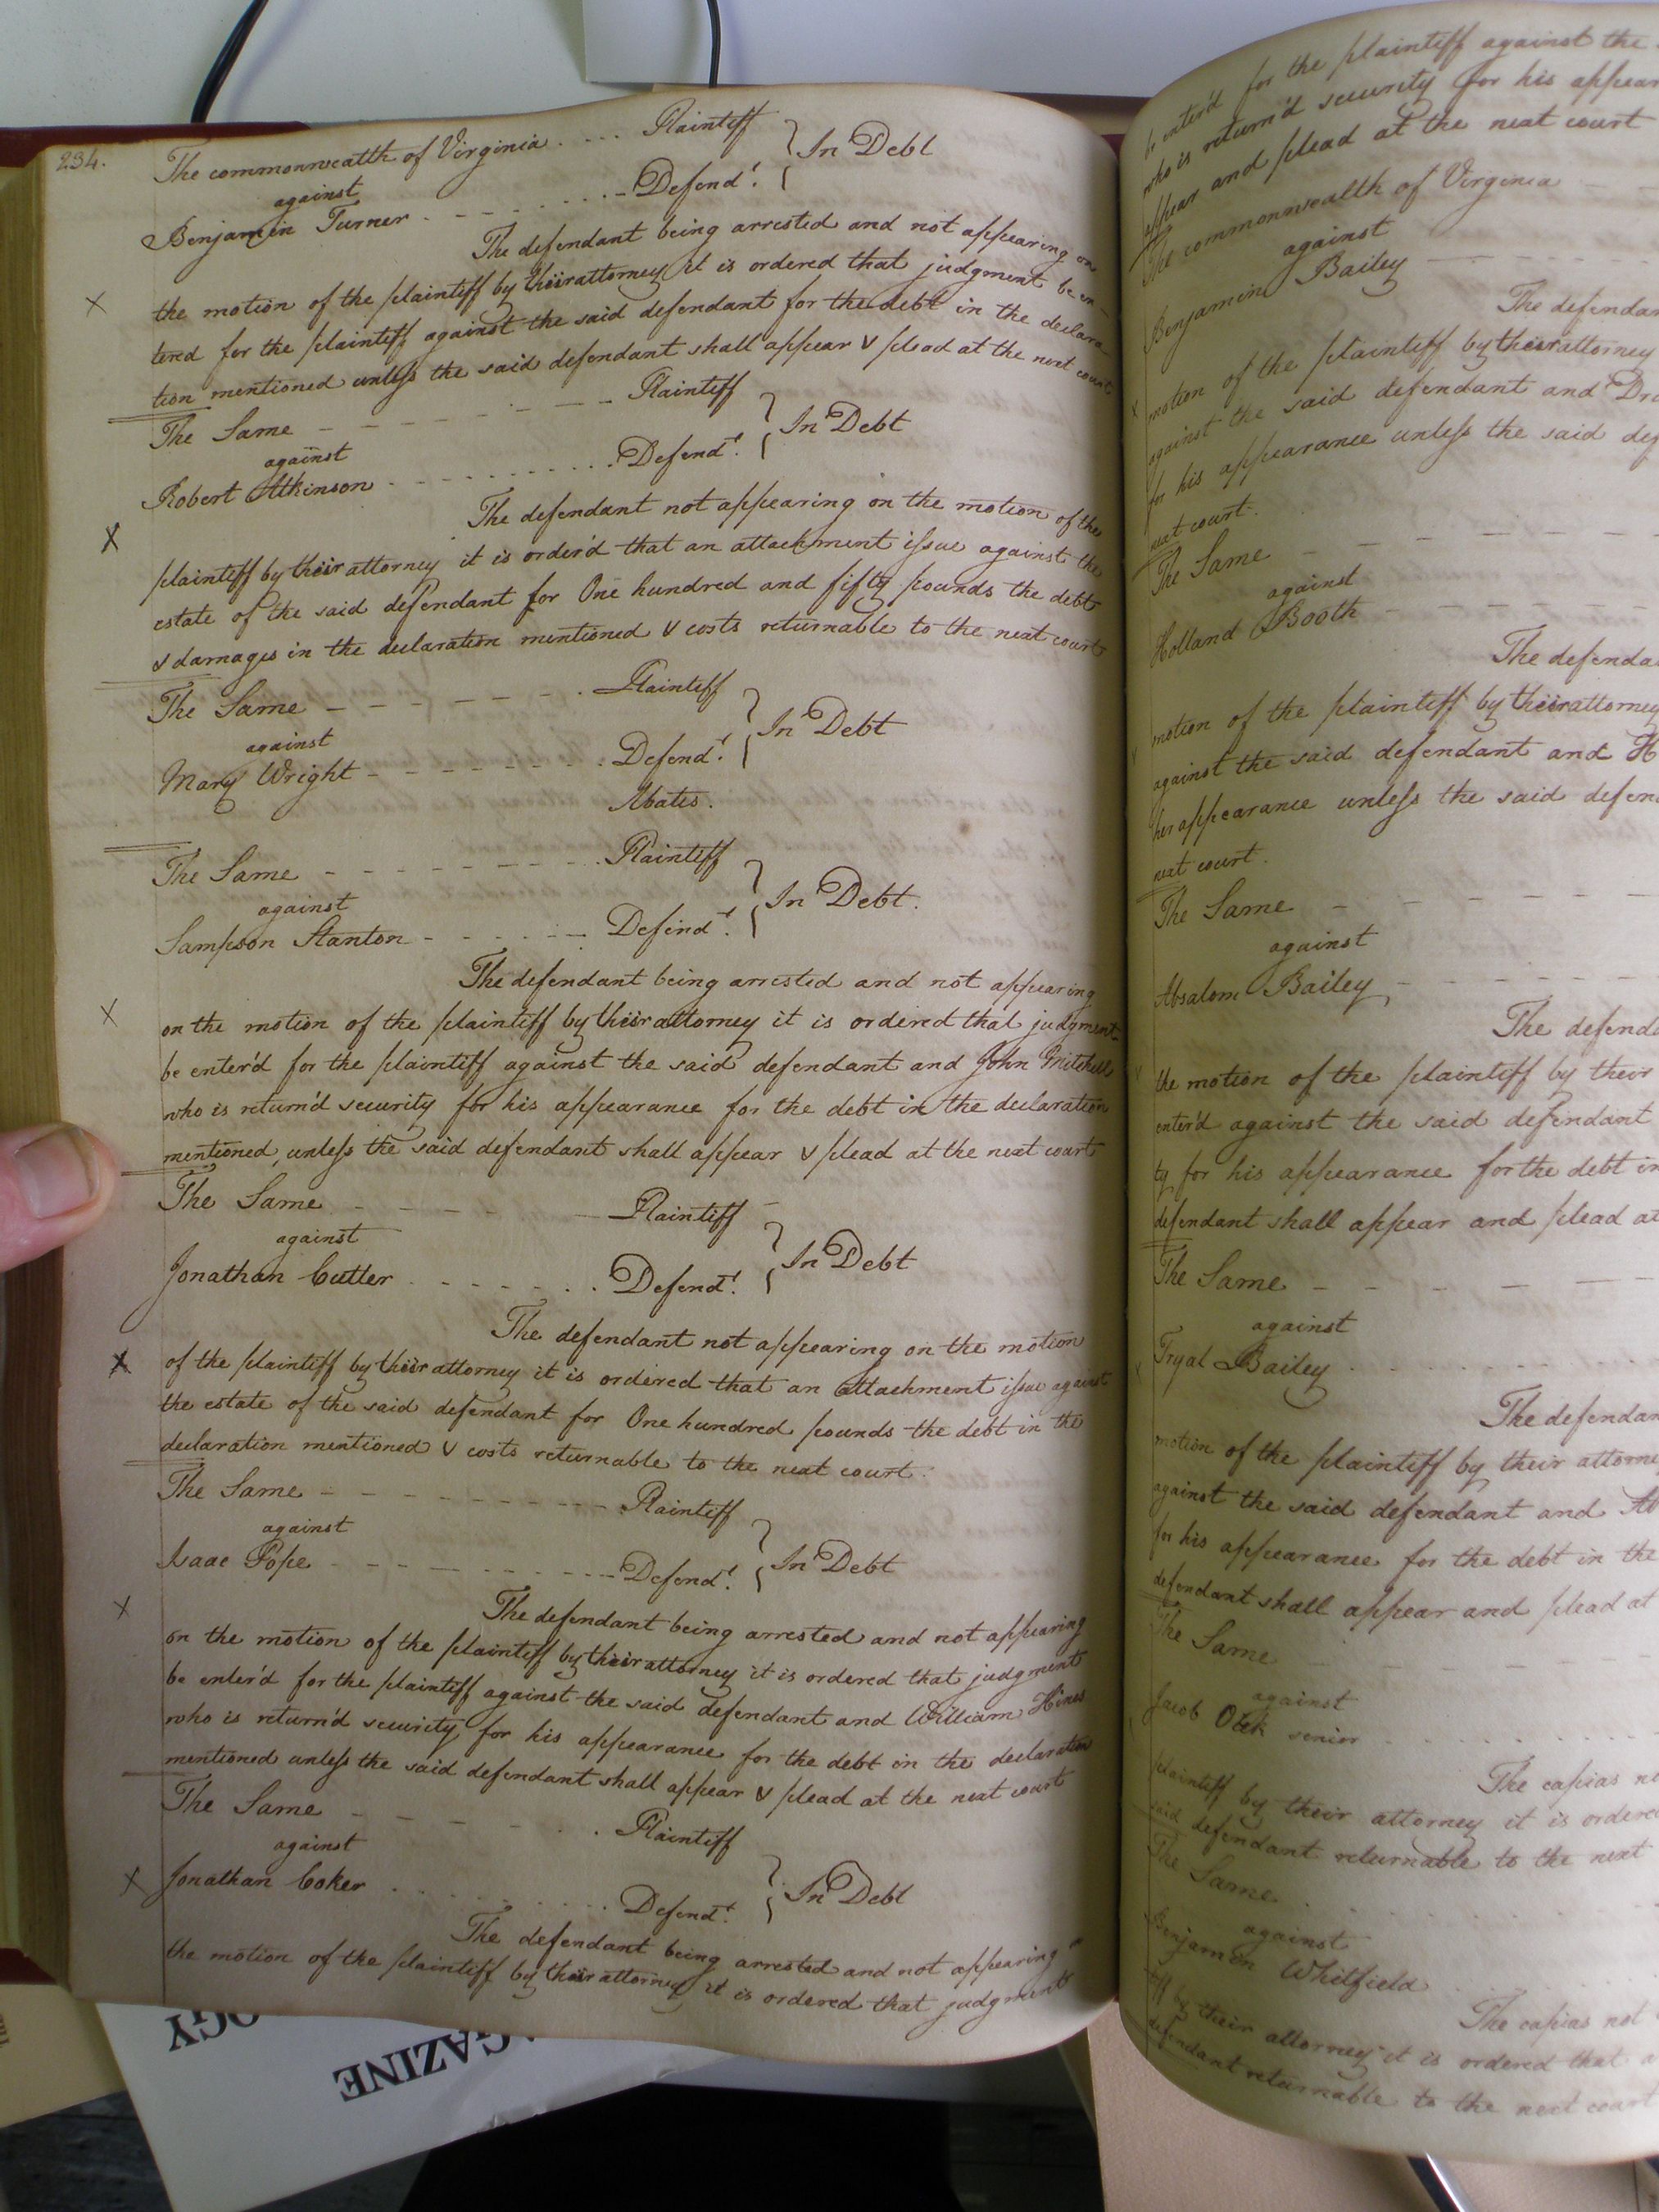 234.
The commonwealth of Virginia . . . . Plaintiff
against
In Debt
Benjamin Turner - - - - - - - Defendt.
The defendant being arrested and not appearing on
the motion of the plaintiff by their attorney it is ordered that judgment be en
tered for the plaintiff against the said defendant for the debt in the declara
tion mentioned unless the said defendant shall appear & plead at the next court
The Same - - - - - - - Plaintiff
against
In Debt
Robert Atkinson - - - - - - - Defendt.
The defendant not appearing on the motion of the
plaintiff by their attorney it is order'd that an attachment issue against the
estate of the said defendant for One hundred and fifty pounds the debt
& damages in the declaration mentioned & costs returnable to the next court
The Same - - - - - - - Plaintiff
against
In Debt
Mary Wright - - - - - - - Defendt.
Abates.
The Same - - - - - - - Plaintiff
against
In Debt.
Sampson Stanton - - - - - - Defendt.
The defendant being arrested and not appearing
on the motion of the plaintiff by their attorney it is ordered that judgment
be enter'd for the plaintiff against the said defendant and John Mitchell
who is return'd security for his appearance for the debt in the declaration
mentioned, unless the said defendant shall appear & plead at the next court
The Same - - - - - - Plaintiff
against
In Debt
Jonathan Cutler - - - - - - - Defendt.
The defendant not appearing on the motion
of the plaintiff by their attorney it is ordered that an attachment issue against
the estate of the said defendant for One hundred pounds the debt in the
declaration mentioned & costs returnable to the next court.
The Same - - - - - - - Plaintiff
against
In Debt
Isaac Pope - - - - - - - Defendt.
The defendant being arrested and not appearing
on the motion of the plaintiff by their attorney it is ordered that judgment
be enter'd for the plaintiff against the said defendant and William Hines
who is return'd security for his appearance for the debt in the declaration
mentioned unless the said defendant shall appear & plead at the next court
The Same - - - - - - Plaintiff
against
In Debt
Jonathan Coker - - - - - - - Defendt.
The defendant being arrested and not appearing on
the motion of the plaintiff by their attorney it is ordered that judgment
be enter'd for the plaintiff against the
who is return'd security for his appear
appear and plead at the next court
The commonwealth of Virginia
against
Benjamin Bailey
The defendan
motion of the plaintiff by their attorney
against the said defendant and
for his appearance unless the said def
next court.
The Same
against
Holland Booth
The defenda
motion of the plaintiff by their attorney
against the said defendant and H
her appearance unless the said defen
next court.
The Same
against
Absalom Bailey
The defenda
the motion of the plaintiff by their
enter'd against the said defendant
ty for his appearance for the debt in
defendant shall appear and plead at
The Same
against
Tryal Bailey
The defendan
motion of the plaintiff by their attorne
against the said defendant and
for his appearance for the debt in the
defendant shall appear and plead at
The Same
against
Jacob senior
The capias no
plaintiff by their attorney it is ordered
said defendant returnable to the next
The Same
against
Benjamin Whitfield
The capias not
tiff by their attorney it is ordered that a
defendant returnable to the next court
OGY
GAZINE